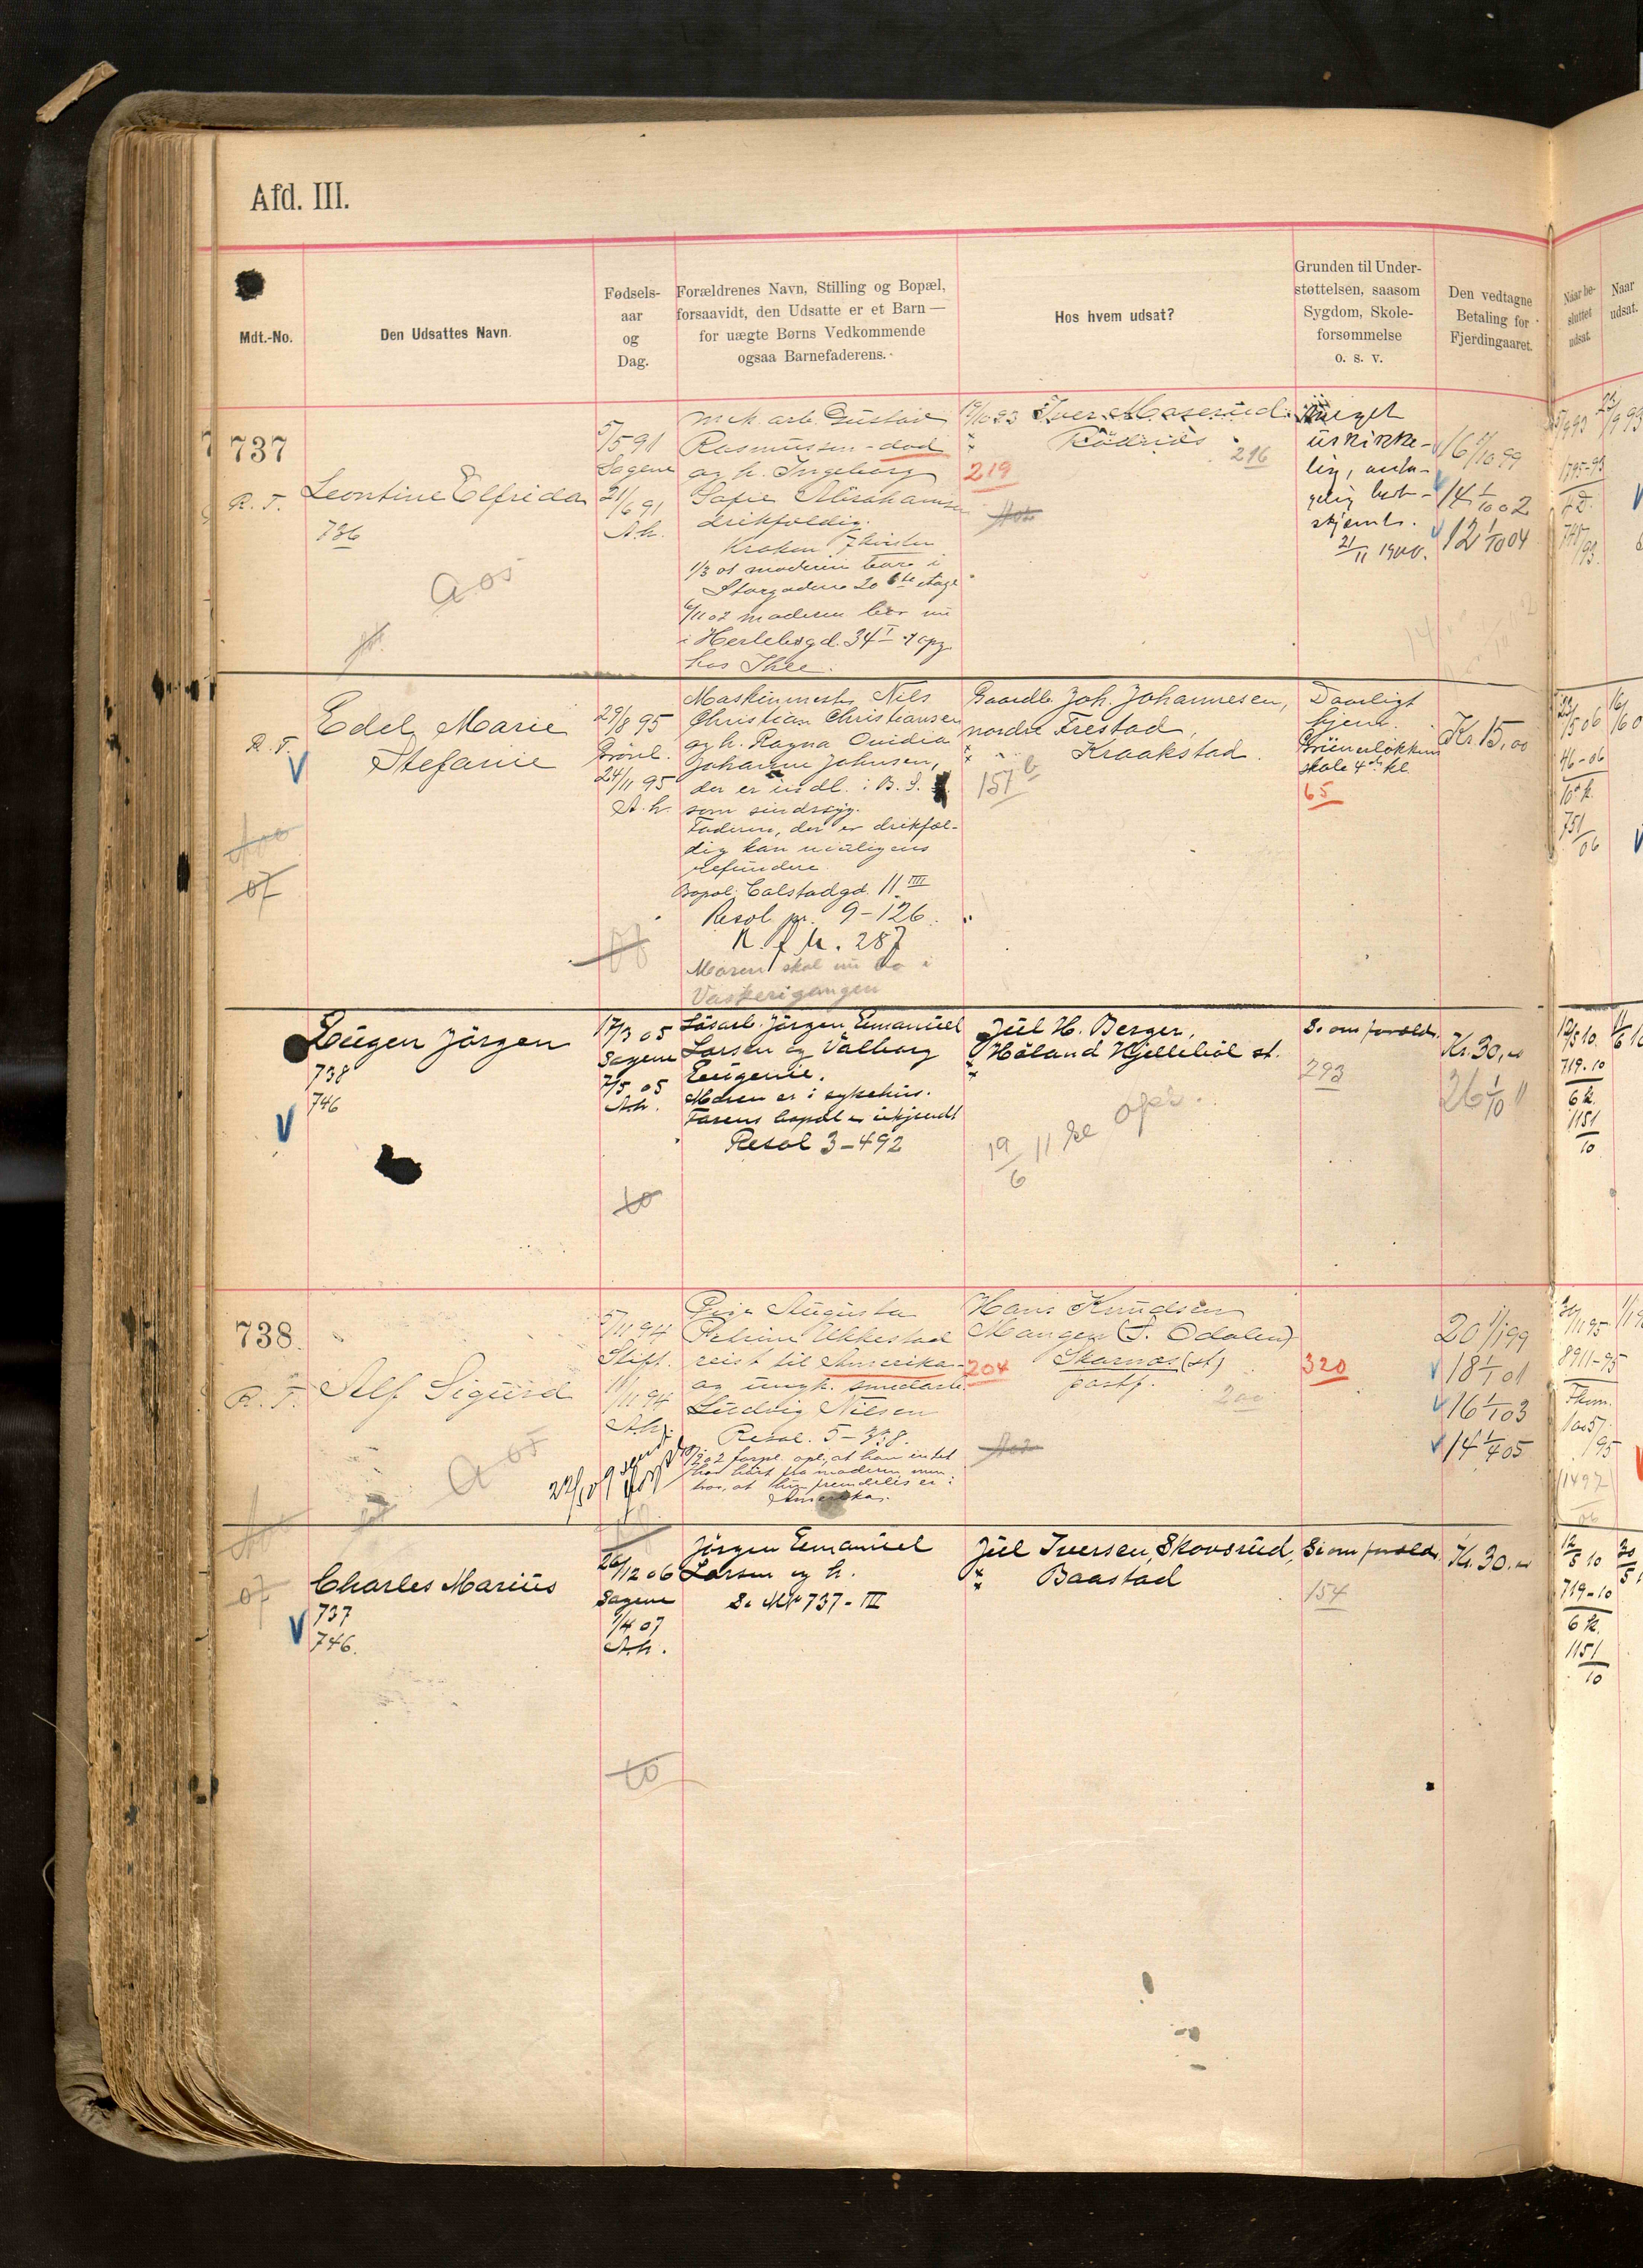 Afd. III.
Mdt.-No.
Den Udsattes Navn.
Fødsels-
aar
og
Dag.
Forældrenes Navn, Stilling og Bopæl,
forsaavidt, den Udsatte er et Barn —
for uægte Børns Vedkommende
ogsaa Barnefaderens.
Hos hvem udsat?
Grunden til Under-
støttelsen, saasom
Sygdom, Skole-
forsømmelse
o. s. v.
Den vedtagne
Betaling for
Fjerdingaaret.
Naar be-
sluttet
udsat.
Naar
udsat.
737
R. F.
Leontine Elfrida
736
5/5 91
Sagene
21/6 91
A.h.
mek. arb. Gustav
Rasmussen - død
og h. Ingeborg
Sofie Abrahamsen
drikfældig.
1/3 01 moderen bor i
Storgaden 20 6te etage
6/11 02 moderen bor nu
i Herslebsgd. 34 I opg.
hos Thle.
Iver Maserud
219
216
meget
uskikke-
lig, anta-
gelig
21/11 1900.
16 1/10 99
14 1/10 02
12 1/10 04
R. F.
Edel Marie
Stefanie
29/8 95
24/11 95
A. h.
Maskinmester Nils
Christian Christiansen
og h. Ragna Ovidia
Johanne Johnsen,
der er indl. i B. S.
som sindssyg.
Faderen, der er drikfæl-
dig kan muligens
refundere
Bopæl: Calstadgd. 11 IIII
Resol. pr. 9-126.
R. f. h. 287
Moren skal nu bo i
Vaskerigangen
Gaardbr. Joh. Johannesen,
nordre Frestad,
Kraakstad.
157 b
Daarligt
hjem.
Grünerløkkens
skole 4de kl.
65
Kr. 15,00
07
Eugen Jörgen
738
746
17/3 05
Sagene
7/5 05
A.h.
Løsarb. Jörgen Emanuel
Larsen og Valborg
Eugenie.
Moren er i sykehus.
Farens bopæl er ukjendt
Resol 3-492
Juel H. Berger,
Höland Hjellebøl st.
19/6 11 kl. opl.
S. om foræld.
293
Kr. 30,00
26 1/10 11
719-10
6 k.
1151
10
738.
R. F.
Alf Sigurd
5/11 94
Stift.
11/11 94
A.h.
Pige Augusta
Petrine Ukkestad
reist til Amerika
og ungk. smedarb.
Ludvig Nilsen
Resol. 5-338.
Amerika.
Hans Knudsen
Mangen (S. Odalen)
Skarnæs (st)
postf.
204
200
320
20 1/1 99
18 1/1 01
16 1/1 03
14 1/4 05
8911-95
07
Charles Marius
737
746.
26/12 06
Sagene
1/4 07
A.h.
Jörgen Emanuel
Larsen og h.
S. No 737-III
Juel Iversen, Skovsrud,
Baastad
S. om foræld.
154
Kr. 30,00
12/5 10
719-10
6 k.
1151
10